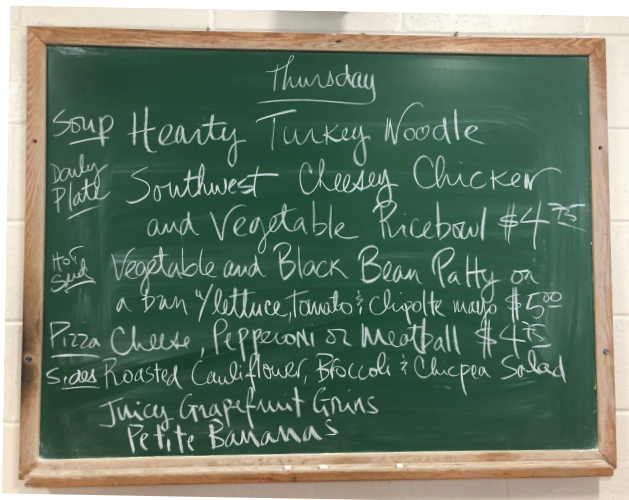 Thursday
Soup Hearty Turkey Noodle
Daily Plate Southwest Cheesey Chicken
and Vegetable Ricebowl $4.75
Hot Sand Vegetable and Black Bean Patty on
a bun w/lettuce, tomato & Chipolte mayo $5.00
Pizza Cheese, Pepperoni or Meatball $4.75
Sides Roasted Cauliflower, Broccoli & Chicpea Salad
Juicy Grapefruit Grins
Petite Bananas